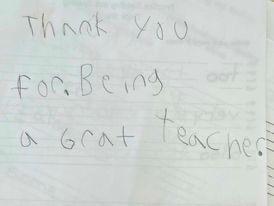 Thank you
for. Being
a Grat teacher.